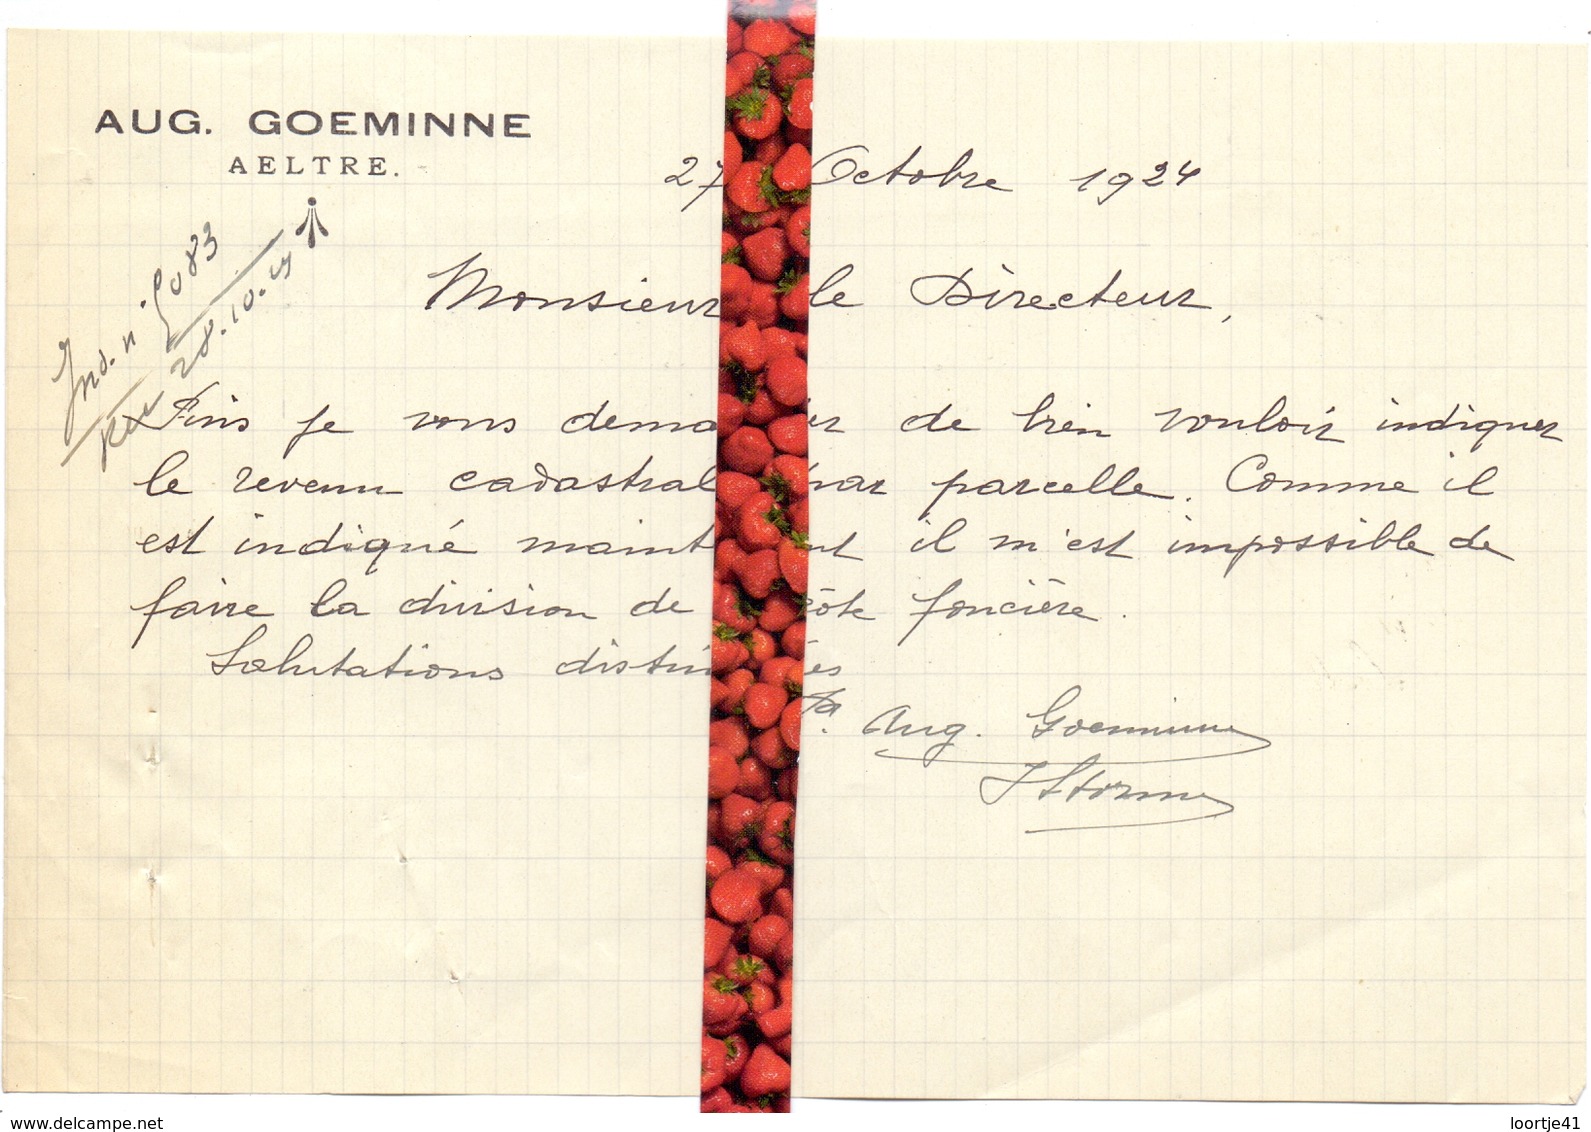 AUG. GOEMINNE
AELTRE.
27 Octobre 1924
Ind. n° 5083
28.10.24
Monsieur le Directeur,
Puis je vous dema er de bien vouloir indiquer
le revenu cadastral par parcelle. Comme il
est indiqué maint nt il m'est impossible de
faire la division de côte foncière.
Salutations distin ées
Aug. Goeminne
J Storme
www.delcampe.net
loortje41